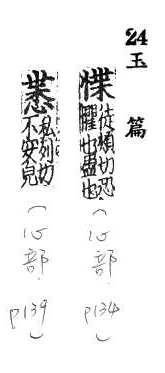 24 玉篇
惵 徒頰切恐
懼也蠱也
(心部 p134)
私列切
不安皃
(心部 p139)